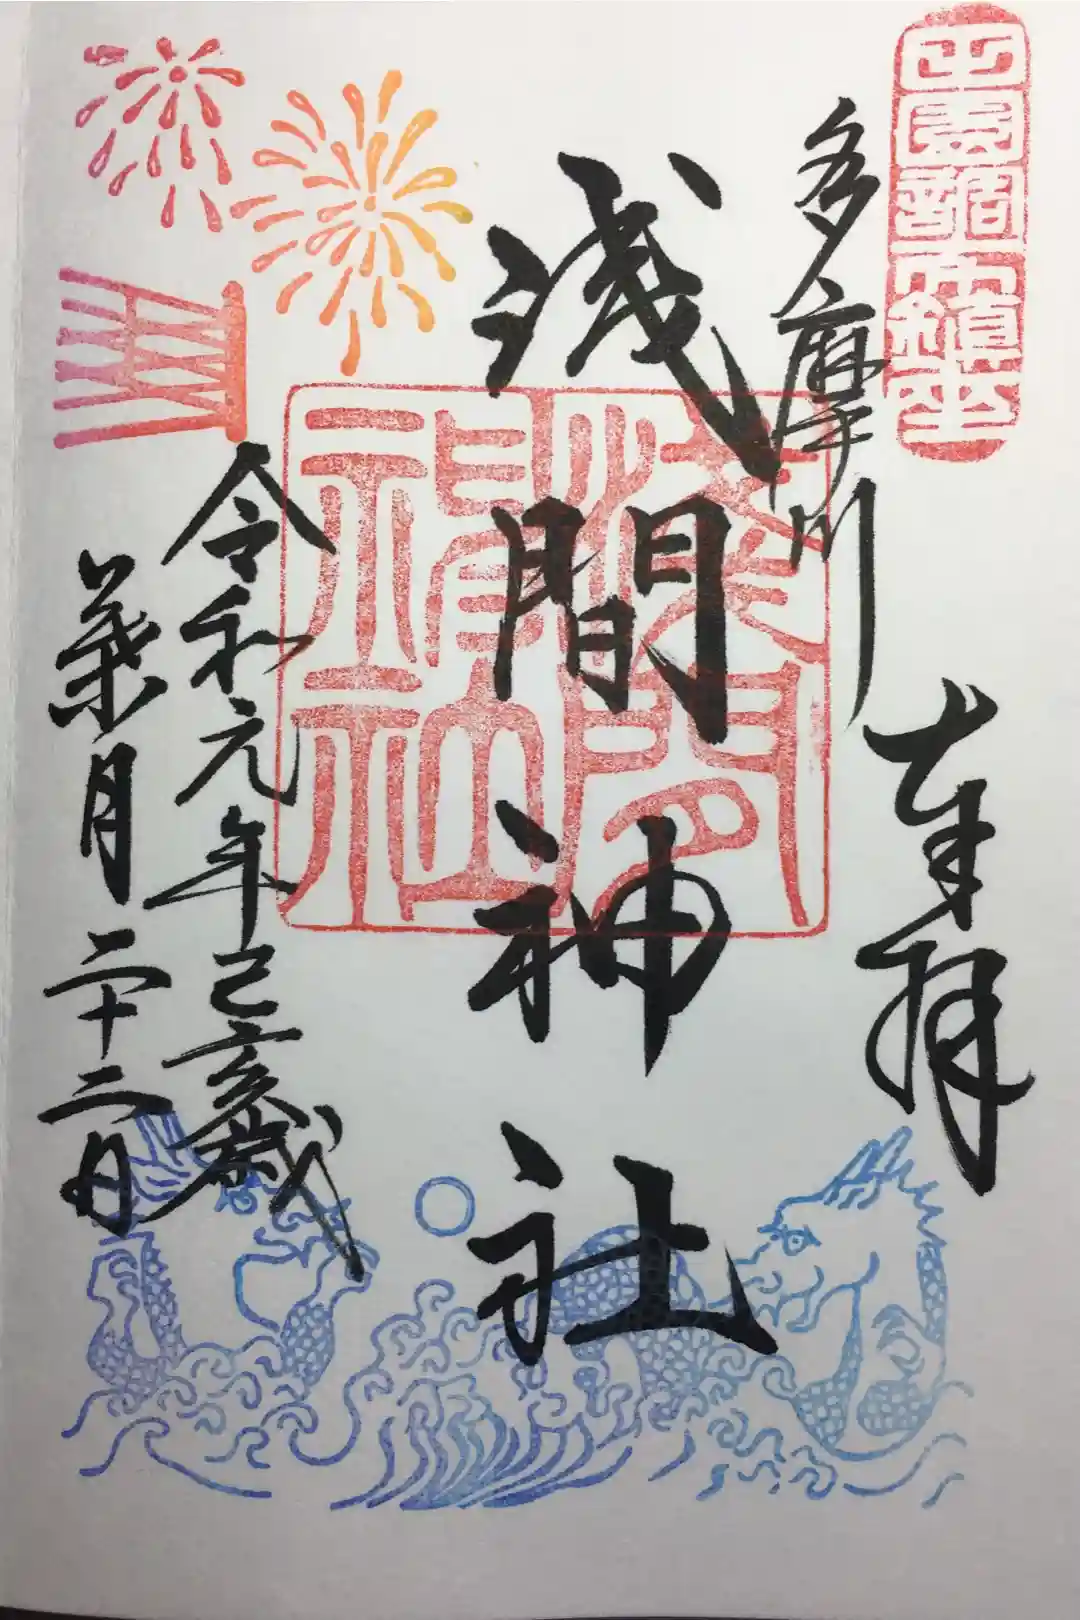 田園調布鎮座
奉拝
多摩川
浅間神社
淺間
神社
令和元年己亥歳
葉月二十二日